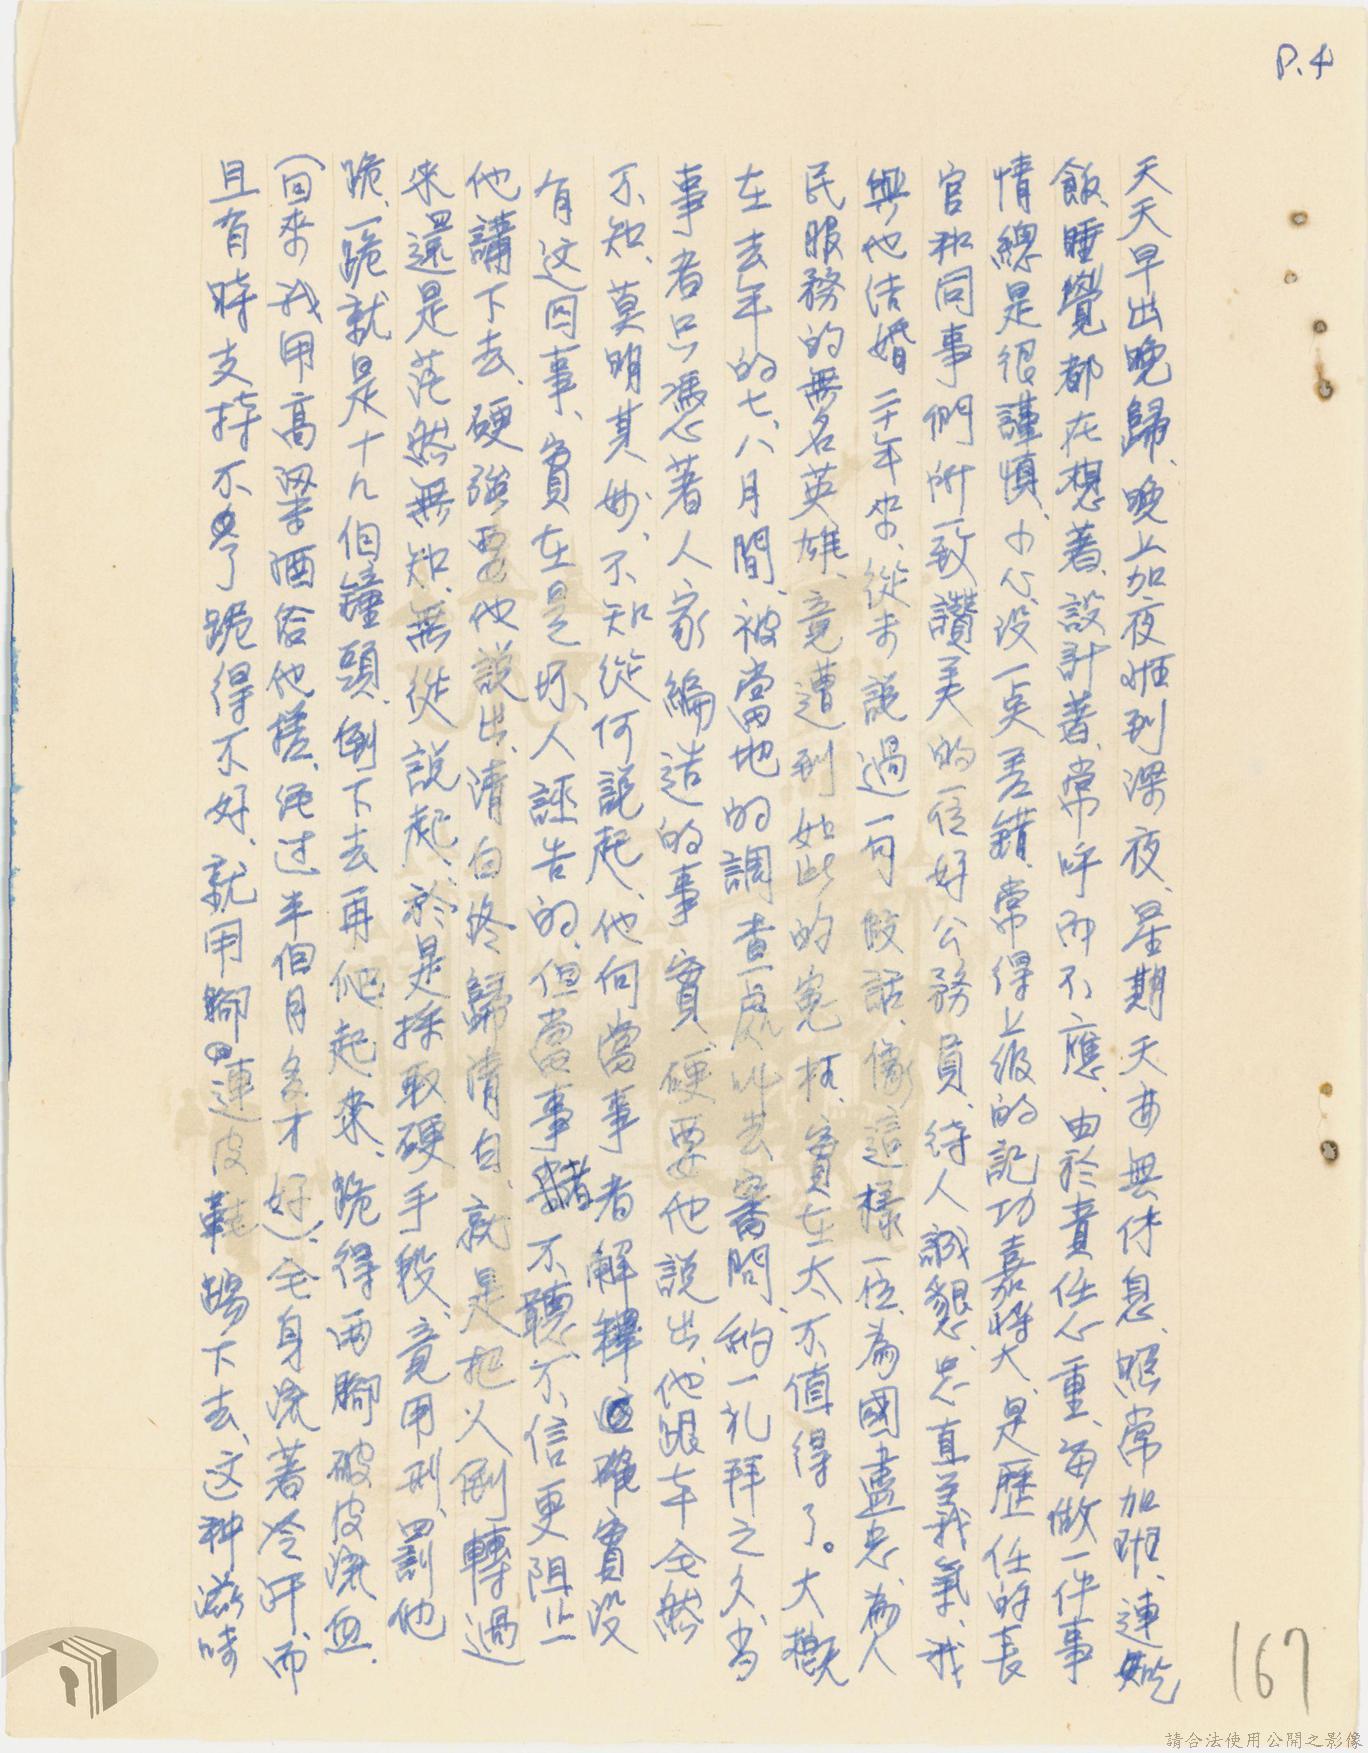 P.4
天天早出晚歸、晚上加夜班到深夜、星期天也無休息、照常加班、連吃
飯、睡覺都在想著、設計著、常呼而不應、由於責任心重、每做一件事
情總是很謹慎、小心、没一点差錯、常得上級的記功嘉獎、是歷任的長
官和同事們所一致讚美的一位好公務員、待人誠懇、忠直義氣、我
與他结婚二十年來、從未說過一句假話、像這樣一位、為國盡忠、為人
民服務的無名英雄、竟遭到如此的冤枉、實在太不值得了。大概
在去年的七、八月間、被當地的調查處叫去審問、約一礼拜之久、当
事者只憑著人家編造的事實、硬要他說出、他跟本全然
不知、莫明其妙、不知從何說起、他向當事者解釋確實没
有这囘事、實在是坏人誣告的、但當事者不聽、不信更阻止
他講下去、硬強要他說出、清白終歸清白、就是把人倒轉過
來還是茫然無知、無從說起、於是採取硬手段、竟用刑、罰他
跪、一跪就是十几個鐘頭、倒下去再爬起來、跪得兩腳破皮流血、
(回來我用高粱酒给他搓、经过半個月多才好)、全身流著冷汗、而
且有時支持不了跪得不好、就用腳連皮鞋踢下去、这种滋味
167
請合法使用公開之影像